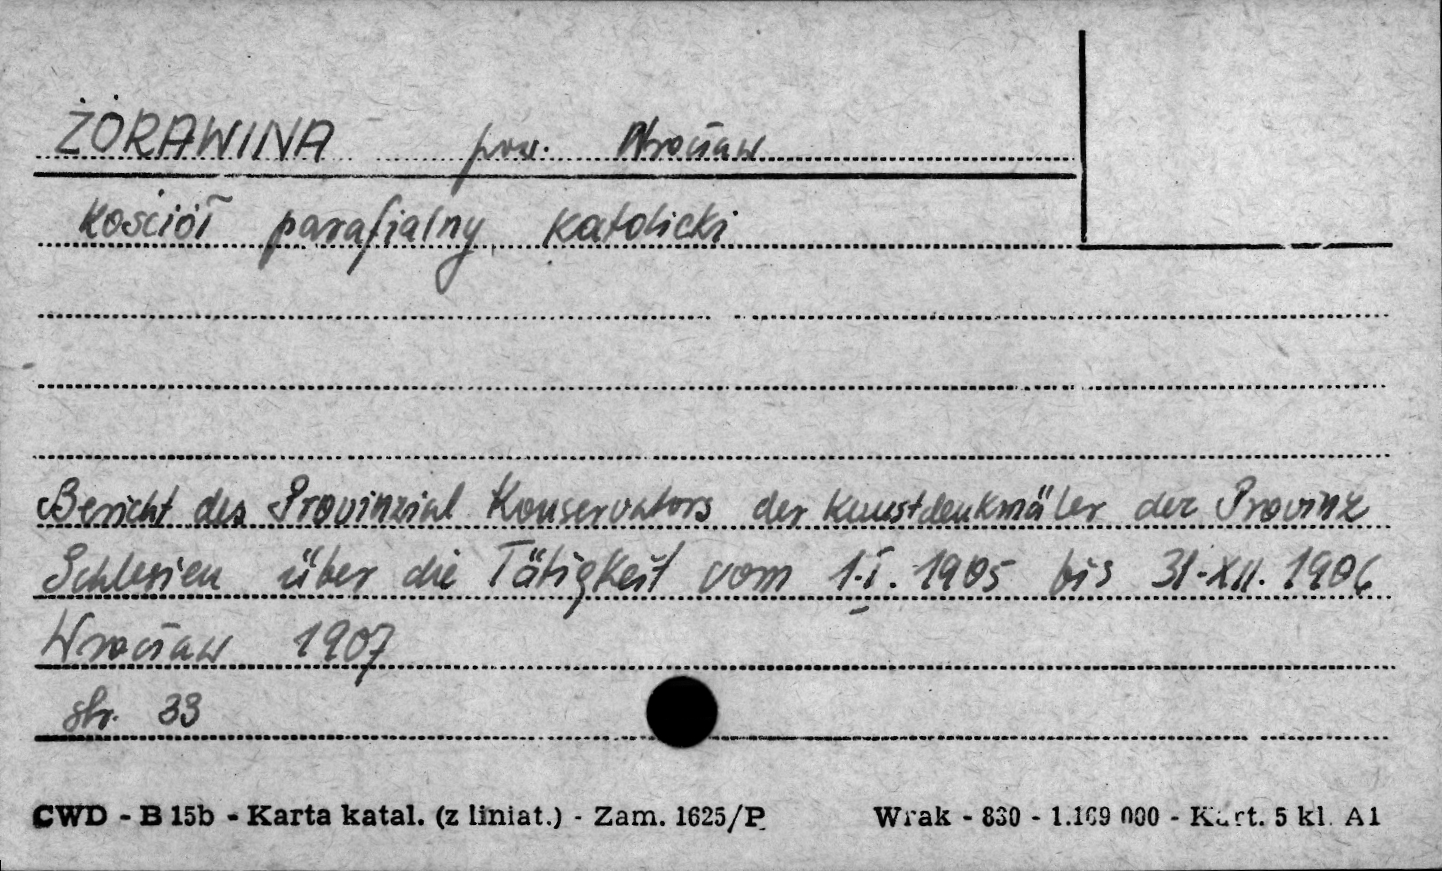 ŻÓRAWINA pow. Wrocław
Kościół parafialny katolicki
Bericht des Provinzial Konservators der Kunstdenkmäler der Provinz
Schlesien über die Tätigkeit vom 1.I. 1905 bis 31.XII. 1906
Wrocław 1907
str. 33
CWD - B 15b - Karta katal. (z liniat.) - Zam. 1625/P Wrak - 830 - 1.169 000 - Kart. 5 kl. A1